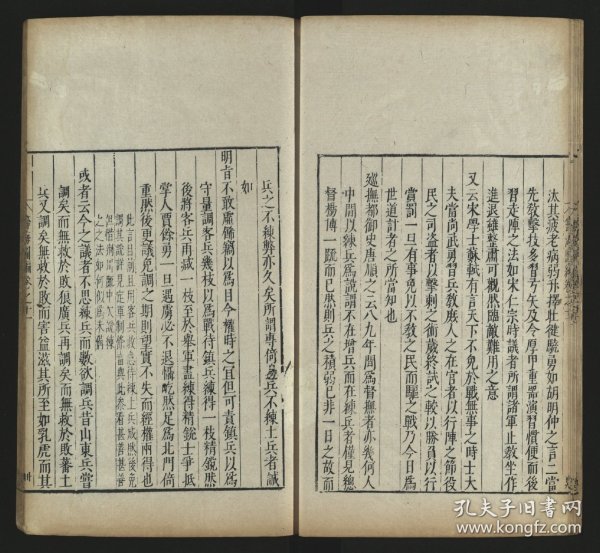 汰其疲老病弱并擇壯徤驍勇如胡明仲之言二當
先教擊技多習弓矢及今厚甲重器演習慣便而後
習走陣之法如宋仁宗時議者所謂諸軍止教坐作
進退雖整肅可觀然臨敵難用之意
又云宋學士蘇軾有言天下不免於戰無事之時士大
夫當尚武勇習兵教庶人之在官者以行陣之節役
民之司盗者以擊刺之術歲終試之較以勝負以行
賞罰一旦有事免以不教之民而驅之戰乃今日爲
世道計者之所當知也
廵撫都御史唐順之云八九年間爲督撫者亦幾何人
中間以練兵爲說謂不在增兵而在練兵者僅見總
督楊博一疏而已然則兵之積弱已非一日之故而
兵之不練弊亦久矣所謂專倚邊兵不練土兵者誠
如
明旨不敢虛備竊以爲日今權時之宜但可責鎮兵以爲
守量調客兵幾枝以爲戰待鎮兵練得一枝精銳然
後將客兵再减一枝至於舉軍盡練得精銳士爭抵
掌人賈餘勇一旦遇虜必不懦怯然足爲北門倚
重然後更議免調之期則望實不失而經權兩得也
或者云今之議者不思練兵而數欲調兵旨山東兵嘗
調矣而無救於敗狼廣兵再調矣而無救於敗蕃土
兵又調矣無救於敗而害益滋其所至如乳虎而其
孔夫子旧书网
www.kongfz.com